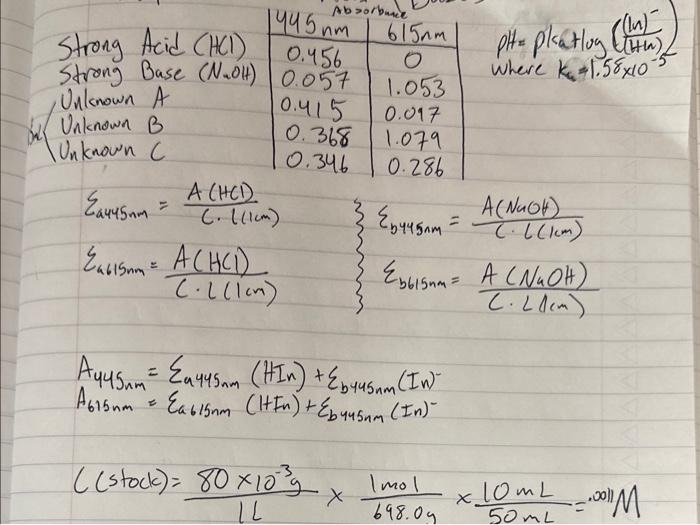 Absorbance
445nm 615nm
Strong Acid (HCl) 0.456 0
Strong Base (NaOH) 0.057 1.053
Unknown A 0.415 0.097
Unknown B 0.368 1.079
Unknown C 0.346 0.286
pH= pka+log ((In)⁻/(HIn))
where Ka=1.58x10⁻⁵
Ɛa445nm = A(HCl) / C·L(1cm)
Ɛb445nm = A(NaOH) / C·L(1cm)
Ɛa615nm = A(HCl) / C·L(1cm)
Ɛb615nm = A(NaOH) / C·L(1cm)
A445nm = Ɛa445nm (HIn) + Ɛb445nm (In)⁻
A615nm = Ɛa615nm (HIn) + Ɛb445nm (In)⁻
C(stock) = 80 x10⁻³g / 1L x 1mol / 698.0g x 10mL / 50mL = .0011M